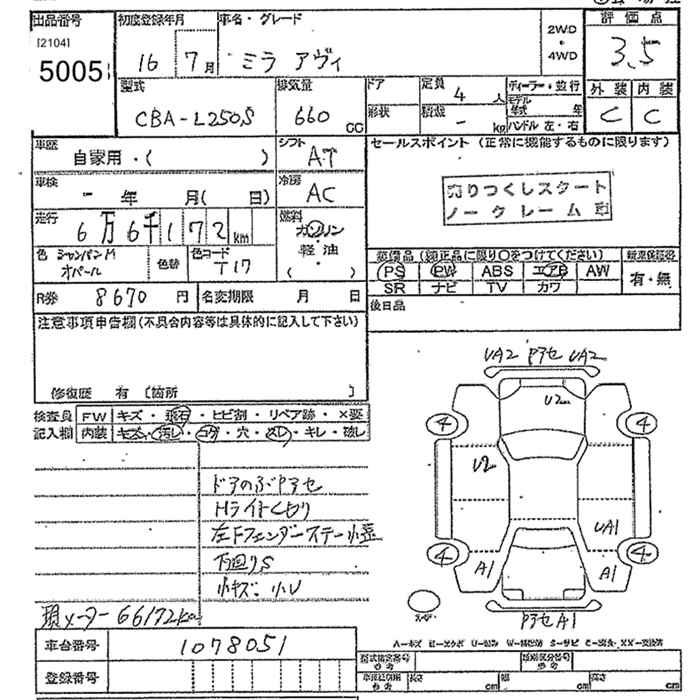 出品番号
[2104]
5005
初度登録年月
16 7月
車名・グレード
ミラ アヴィ
2WD
・
4WD
評価点
3.5
型式
CBA-L250S
排気量
660
CC
ドア
形状
定員 4 人
積載 - kg
ディーラー・並行
モデル年式 年
ハンドル 左・右
外装 内装
C C
車歴
自家用・( )
シフト
AT
セールスポイント (正常に機能するものに限ります)
車検
- 年 月( 日)
冷房
AC
売りつくしスタート
ノークレーム
走行
6万6千172km
燃料
ガソリン
・
軽油
( ・ )
色 シャンパンM
オパール
色替
色コード
T17
装備品 (純正品に限り○をつけてください)
新車保証書
PS PW ABS エアB AW
SR ナビ TV カワ
有・無
R券 8670 円
名変期限 月 日
後日品
注意事項申告欄 (不具合内容等は具体的に記入して下さい)
修復歴 有 〔箇所 〕
検査員
記入欄
FW キズ・飛石・ヒビ割・リペア跡・×要
内装 キズ・汚レ・コゲ・穴・スレ・キレ・破レ
UA2 Pアセ UA2
U2
4 4
U2
UA1
4 4
A1 A1
PアセA1
ドアのぶPアセ
Hライトくもり
下回りS
小キズ 小U
現メーター 66172km
車台番号 1078051
登録番号
型式指定番号
類別区分番号
長さ cm 幅 cm 高さ cm